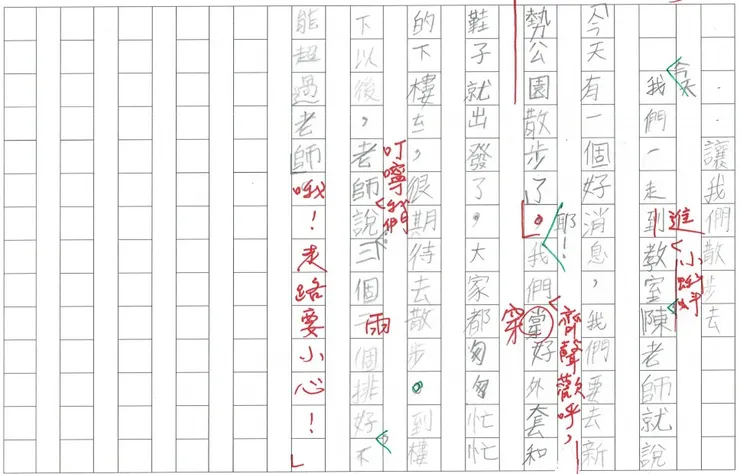 讓我們散步去
今天
我們一走到教室陳老師就說
進
「今天有一個好消息,我們要去新
耶!
齊聲歡呼,
勢公園散步了。我們掌好外套和
穿
鞋子就出發了,大家都匆匆忙忙
的下樓去,很期待去散步。到樓
叮嚀我們
下以後,老師說三個一個排好不
兩
能超過老師哦!走路要小心!」